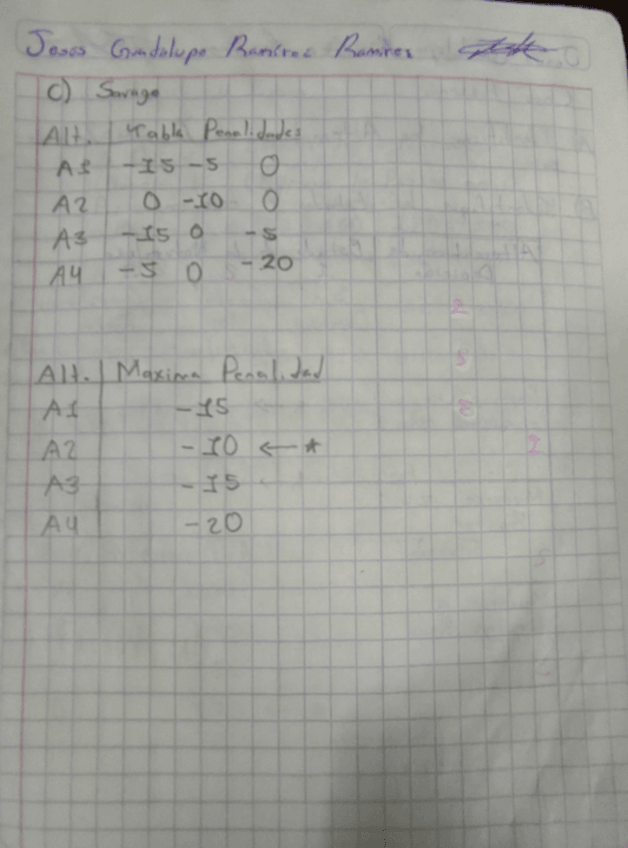 Jesus Guadalupe Ramirez Ramirez
C) Savage
Alt. Tabla Penalidades
A1 -15 -5 0
A2 0 -10 0
A3 -15 0 -5
A4 -5 0 -20
Alt. Maxima Penalidad
A1 -15
A2 -10 ←*
A3 -15
A4 -20